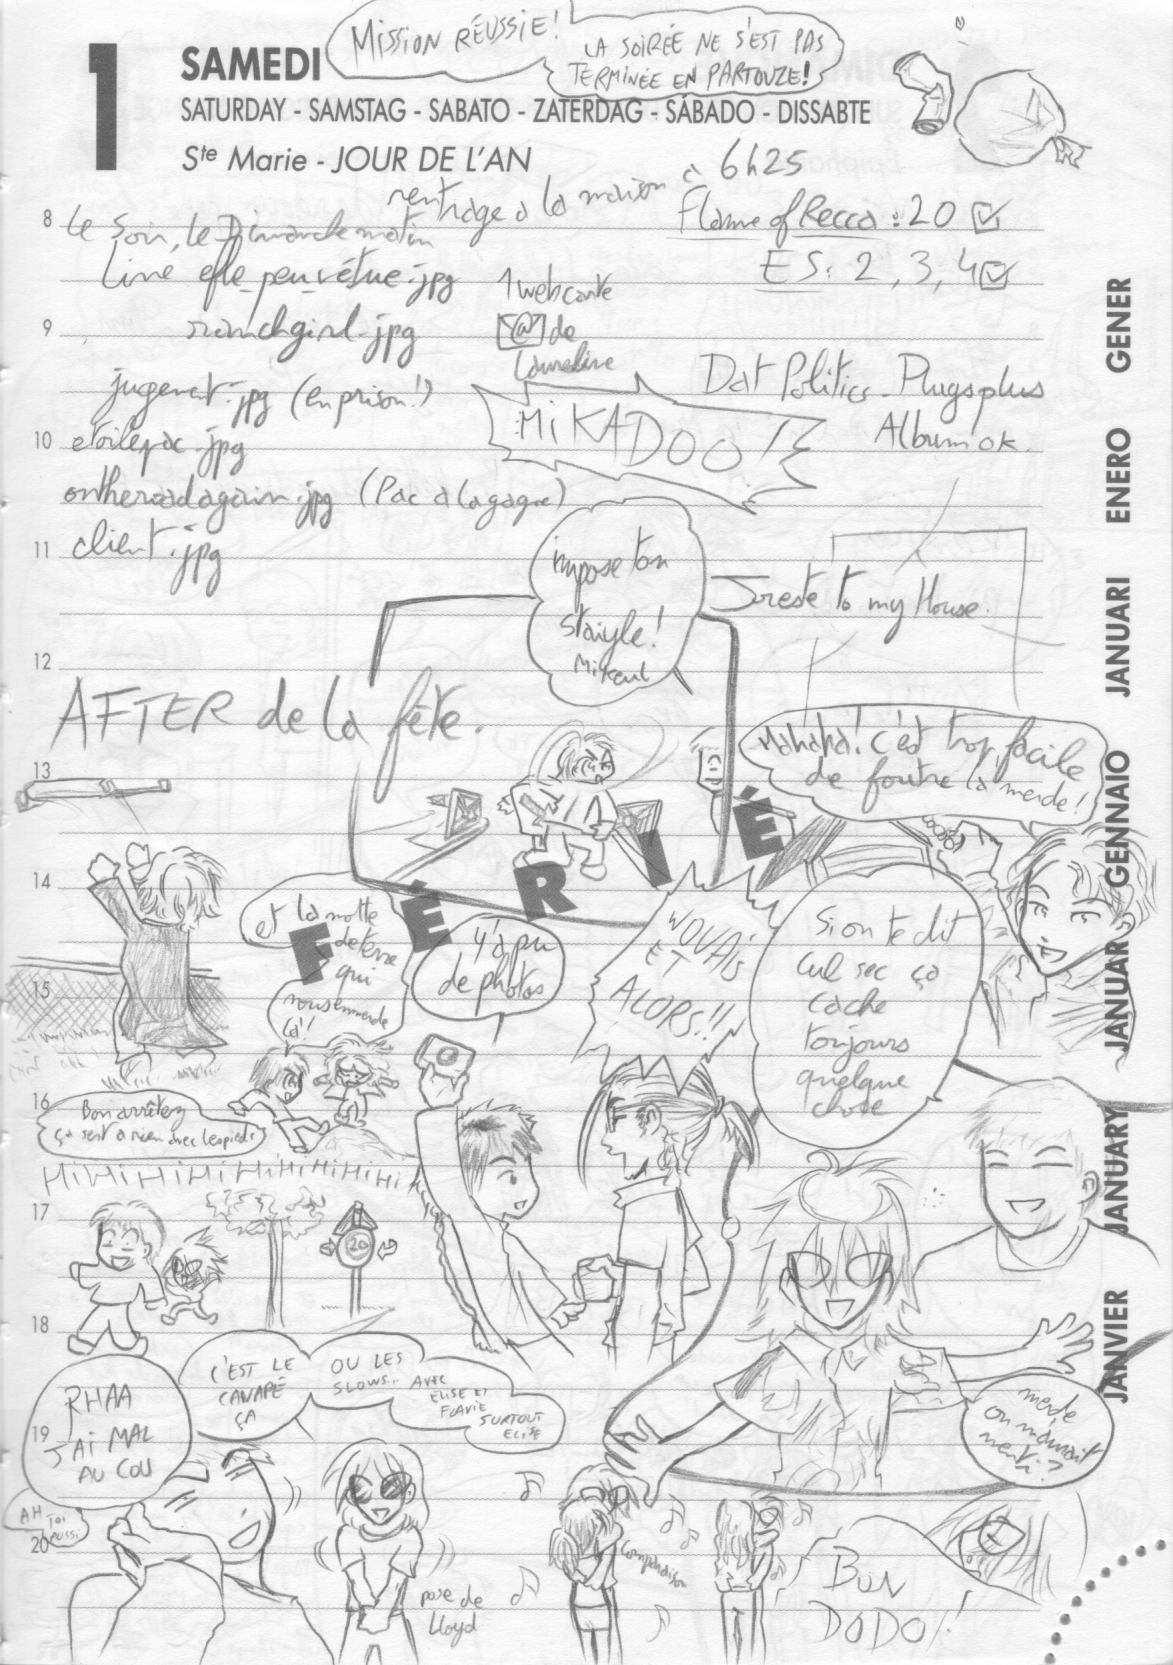 MISSION RÉUSSIE!
LA SOIRÉE NE S'EST PAS
TERMINÉE EN PARTOUZE!
1
SAMEDI
SATURDAY - SAMSTAG - SABATO - ZATERDAG - SÁBADO - DISSABTE
Ste Marie - JOUR DE L'AN
rentrage a la maison à 6h25
8
Le Soir, le Dimanche matin
Flame of Recca : 20
Line elfe_peu_vétue.jpg
ES: 2, 3, 4
1 webcarte
@ de
Laureline
9
ranchgirl.jpg
jugement.jpg (en prison!)
Dat Politics - Plugsplus
Album ok.
MIKADOO!
10
etoilepac.jpg
ontheroadagain.jpg (Pac a la gagne)
11
client.jpg
impose ton
staiyle!
Mikaul
Jereste to my House.
12
AFTER de la fête.
13
Mahaha! c'est trop facile
de foutre la merde!
FÉRIÉ
14
et la motte
de terre
qui
nous emmerde
là!
Y'a pu
de photos
WOUAIS
ET
ALORS!!
Si on te dit
cul sec ça
cache
toujours
quelque
chose
15
16
Bon arrêtez
ça sert a rien avec les pieds
HiHiHiHiHiHiHiHiHiHi
17
20
18
RHAA
J'AI MAL
AU COU
C'EST LE
CANAPÉ
ÇA
OU LES
SLOWS.. AVEC
ELISE ET
FLAVIE
SURTOUT
ELISE
merde
on m'aurait
menti?
19
AH
TOI
AUSSI
20
pose de
Lloyd
comparaison
BON
DODO!
GENER
ENERO
JANUARI
GENNAIO
JANUAR
JANUARY
JANVIER